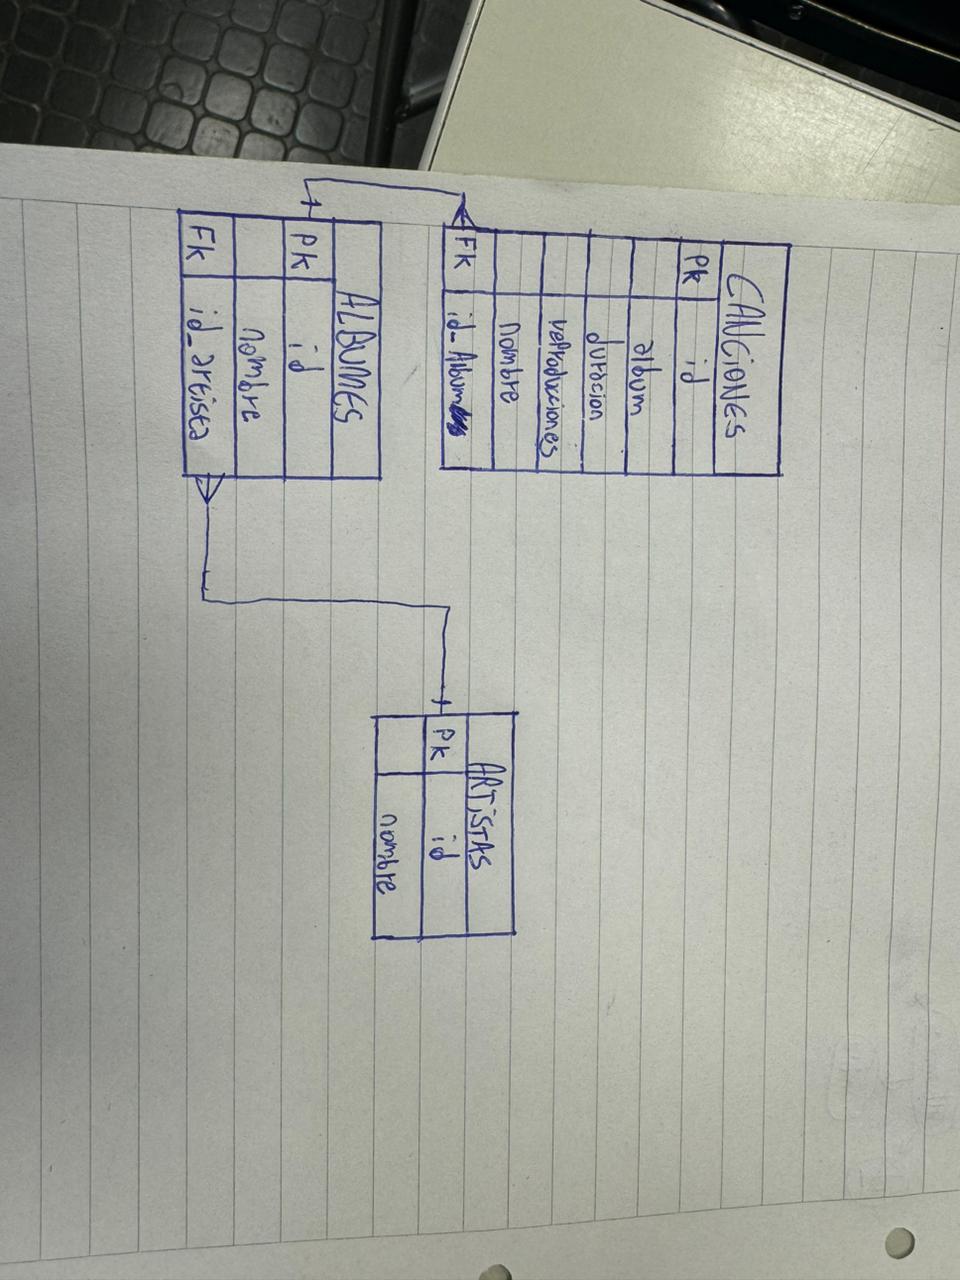 CANCIONES
Pk id
album
duracion
reproducciones
nombre
Fk id_Album
ALBUMES
Pk id
nombre
Fk id_artista
ARTISTAS
Pk id
nombre